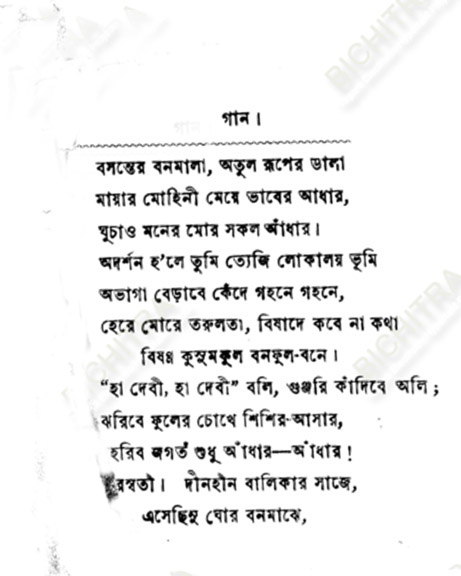 গান।
বসন্তের বনমালা, অতুল রূপের ডালা
মায়ার মোহিনী মেয়ে ভাবের আধার,
ঘুচাও মনের মোর সকল আঁধার।
অদর্শন হ'লে তুমি ত্যেজি লোকালয় ভূমি
অভাগা বেড়াবে কেঁদে গহনে গহনে,
হেরে মোরে তরুলতা, বিষাদে কবে না কথা
বিষণ্ণ কুসুমকুল বনফুল-বনে।
“হা দেবী, হা দেবী” বলি, গুঞ্জরি কাঁদিবে অলি;
ঝরিবে ফুলের চোখে শিশির-আসার,
হরিব জগত শুধু আঁধার—আঁধার!
রস্বতী। দীনহীন বালিকার সাজে,
এসেছিনু ঘোর বনমাঝে,
BICHITRA
BICHITRA
BICHITRA